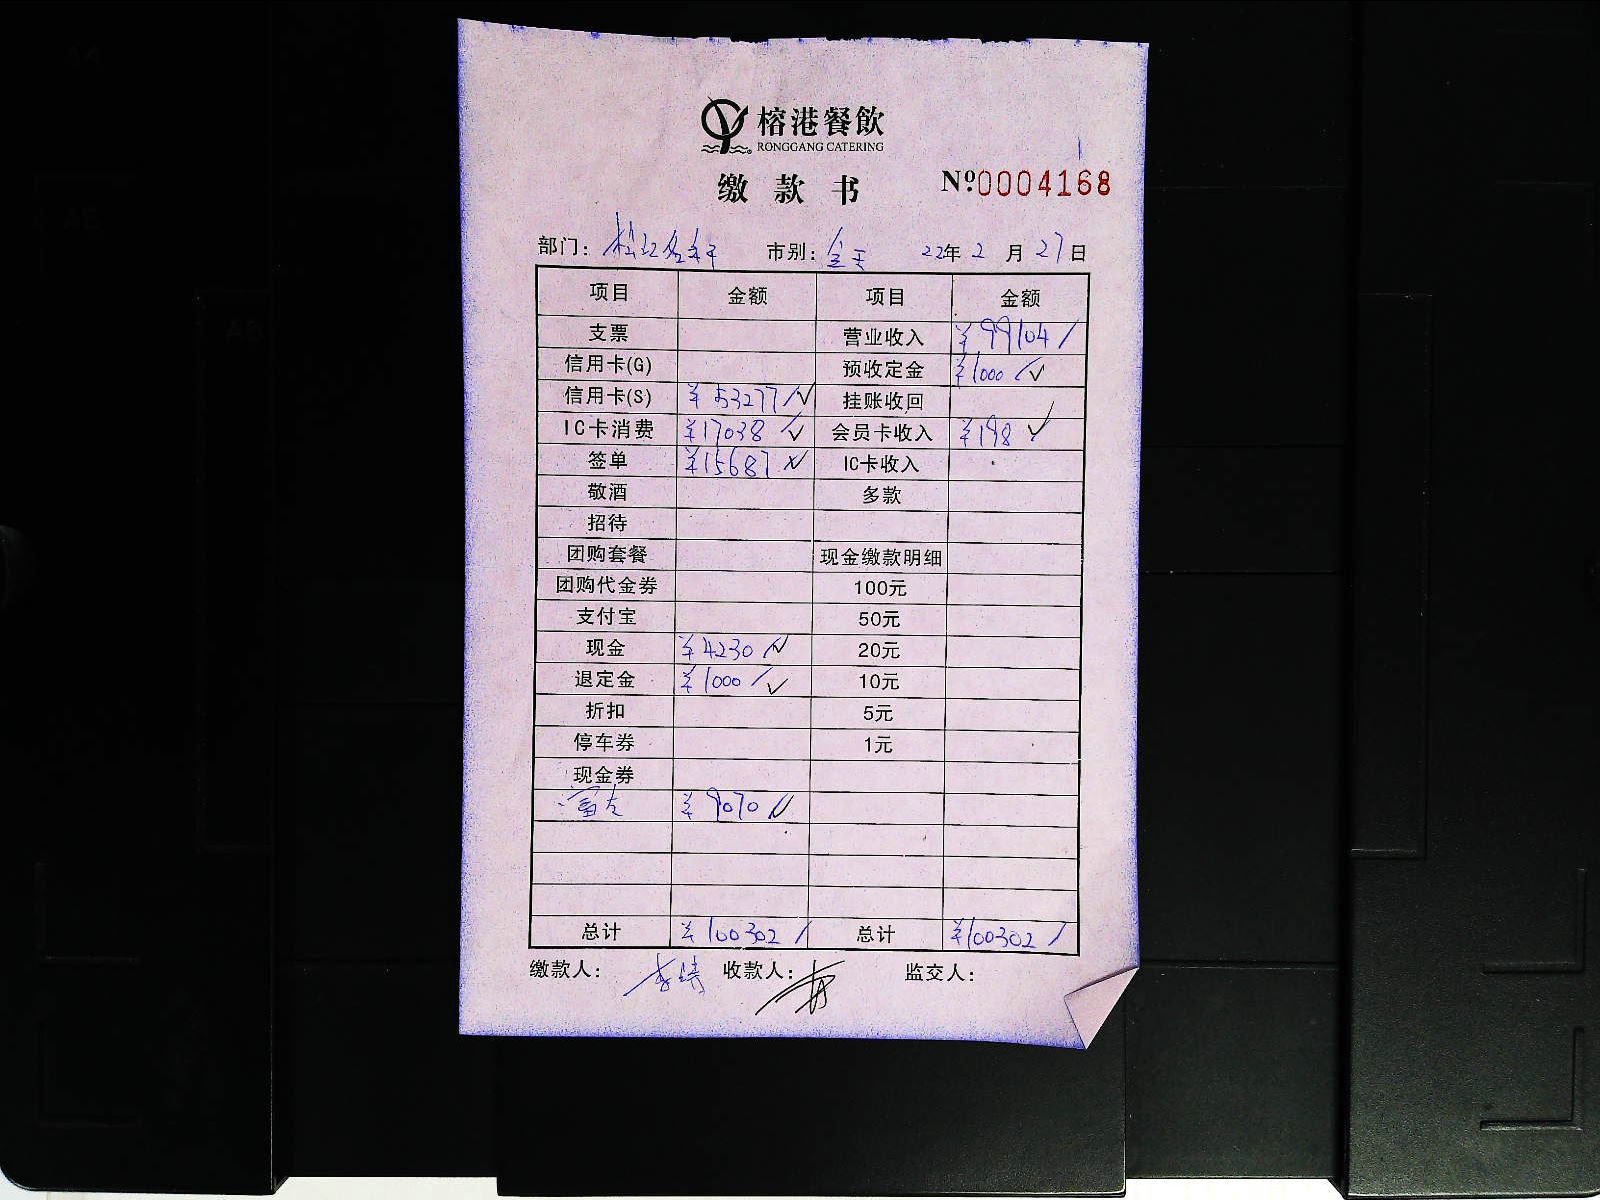 榕港餐飲
RONGGANG CATERING
缴款书 Nº:0004168
部门: 松江名轩 市别: 全天 22年 2 月 27 日
项目 金额 项目 金额
支票 营业收入 ¥99104/
信用卡(G) 预收定金 ¥1000/✓
信用卡(S) ¥53277/✓ 挂账收回
IC卡消费 ¥17038 ✓ 会员卡收入 ¥198 ✓
签单 ¥15687 ✓ IC卡收入
敬酒 多款
招待
团购套餐 现金缴款明细
团购代金券 100元
支付宝 50元
现金 ¥4230 ✓ 20元
退定金 ¥1000/✓ 10元
折扣 5元
停车券 1元
现金券
富友 ¥9070 ✓
总计 ¥100302/ 总计 ¥100302/
缴款人: 收款人: 监交人: